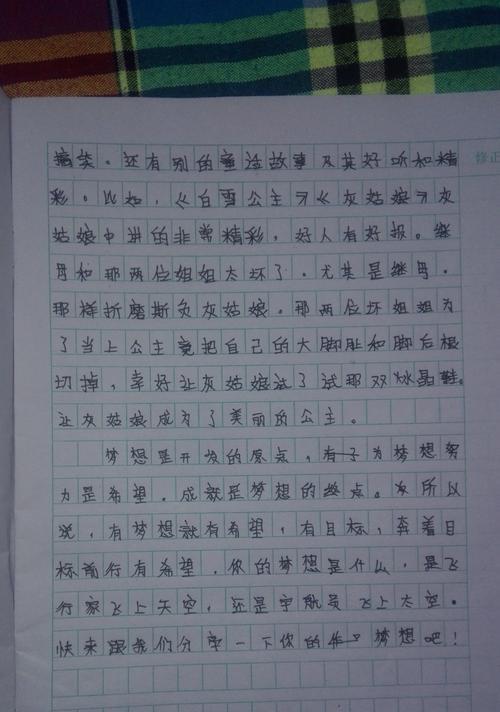 搞笑。还有别的童话故事及其好听和精
彩。比如，《白雪公主》《灰姑娘》灰
姑娘中讲的非常精彩，好人有好报。继
母和那两位姐姐太坏了。尤其是继母。
那样折磨欺负灰姑娘。那两位坏姐姐为
了当上公主竟把自己的大脚趾和脚后根
切掉，幸好让灰姑娘试了试那双水晶鞋。
让灰姑娘成为了美丽的公主。
梦想是开发的原点，有了为梦想努
力是希望。成就是梦想的终点。所以
说，有梦想就有希望，有目标，奔着目
标前行有希望。你的梦想是什么，是飞
行家飞上天空，还是宇航员飞上太空。
快来跟我们分享一下你的梦想吧！
修正